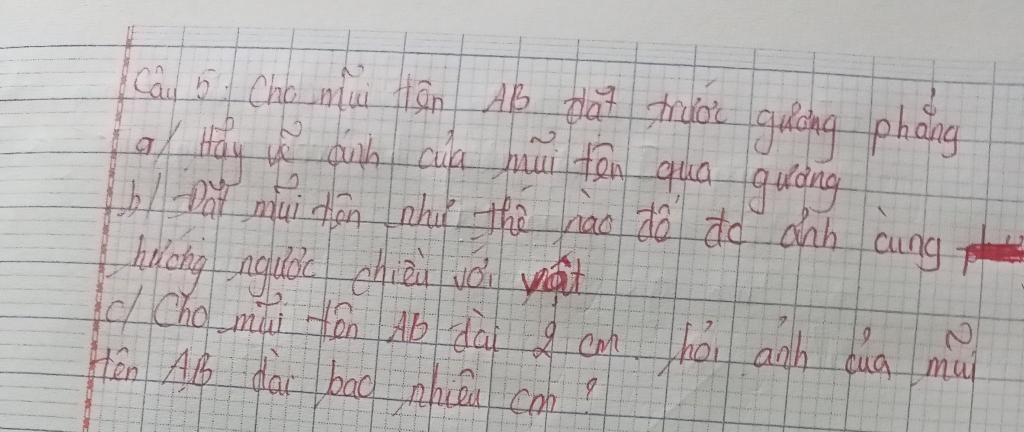 Câu 5: Cho mũi tên AB đặt trước gương phẳng
a/ Hãy vẽ ảnh của mũi tên qua gương
b/ Đặt mũi tên như thế nào để đc ảnh cùng
hướng ngược chiều với vật
c/ Cho mũi tên AB dài 2 cm. hỏi ảnh của mũi
tên AB dài bao nhiêu cm?